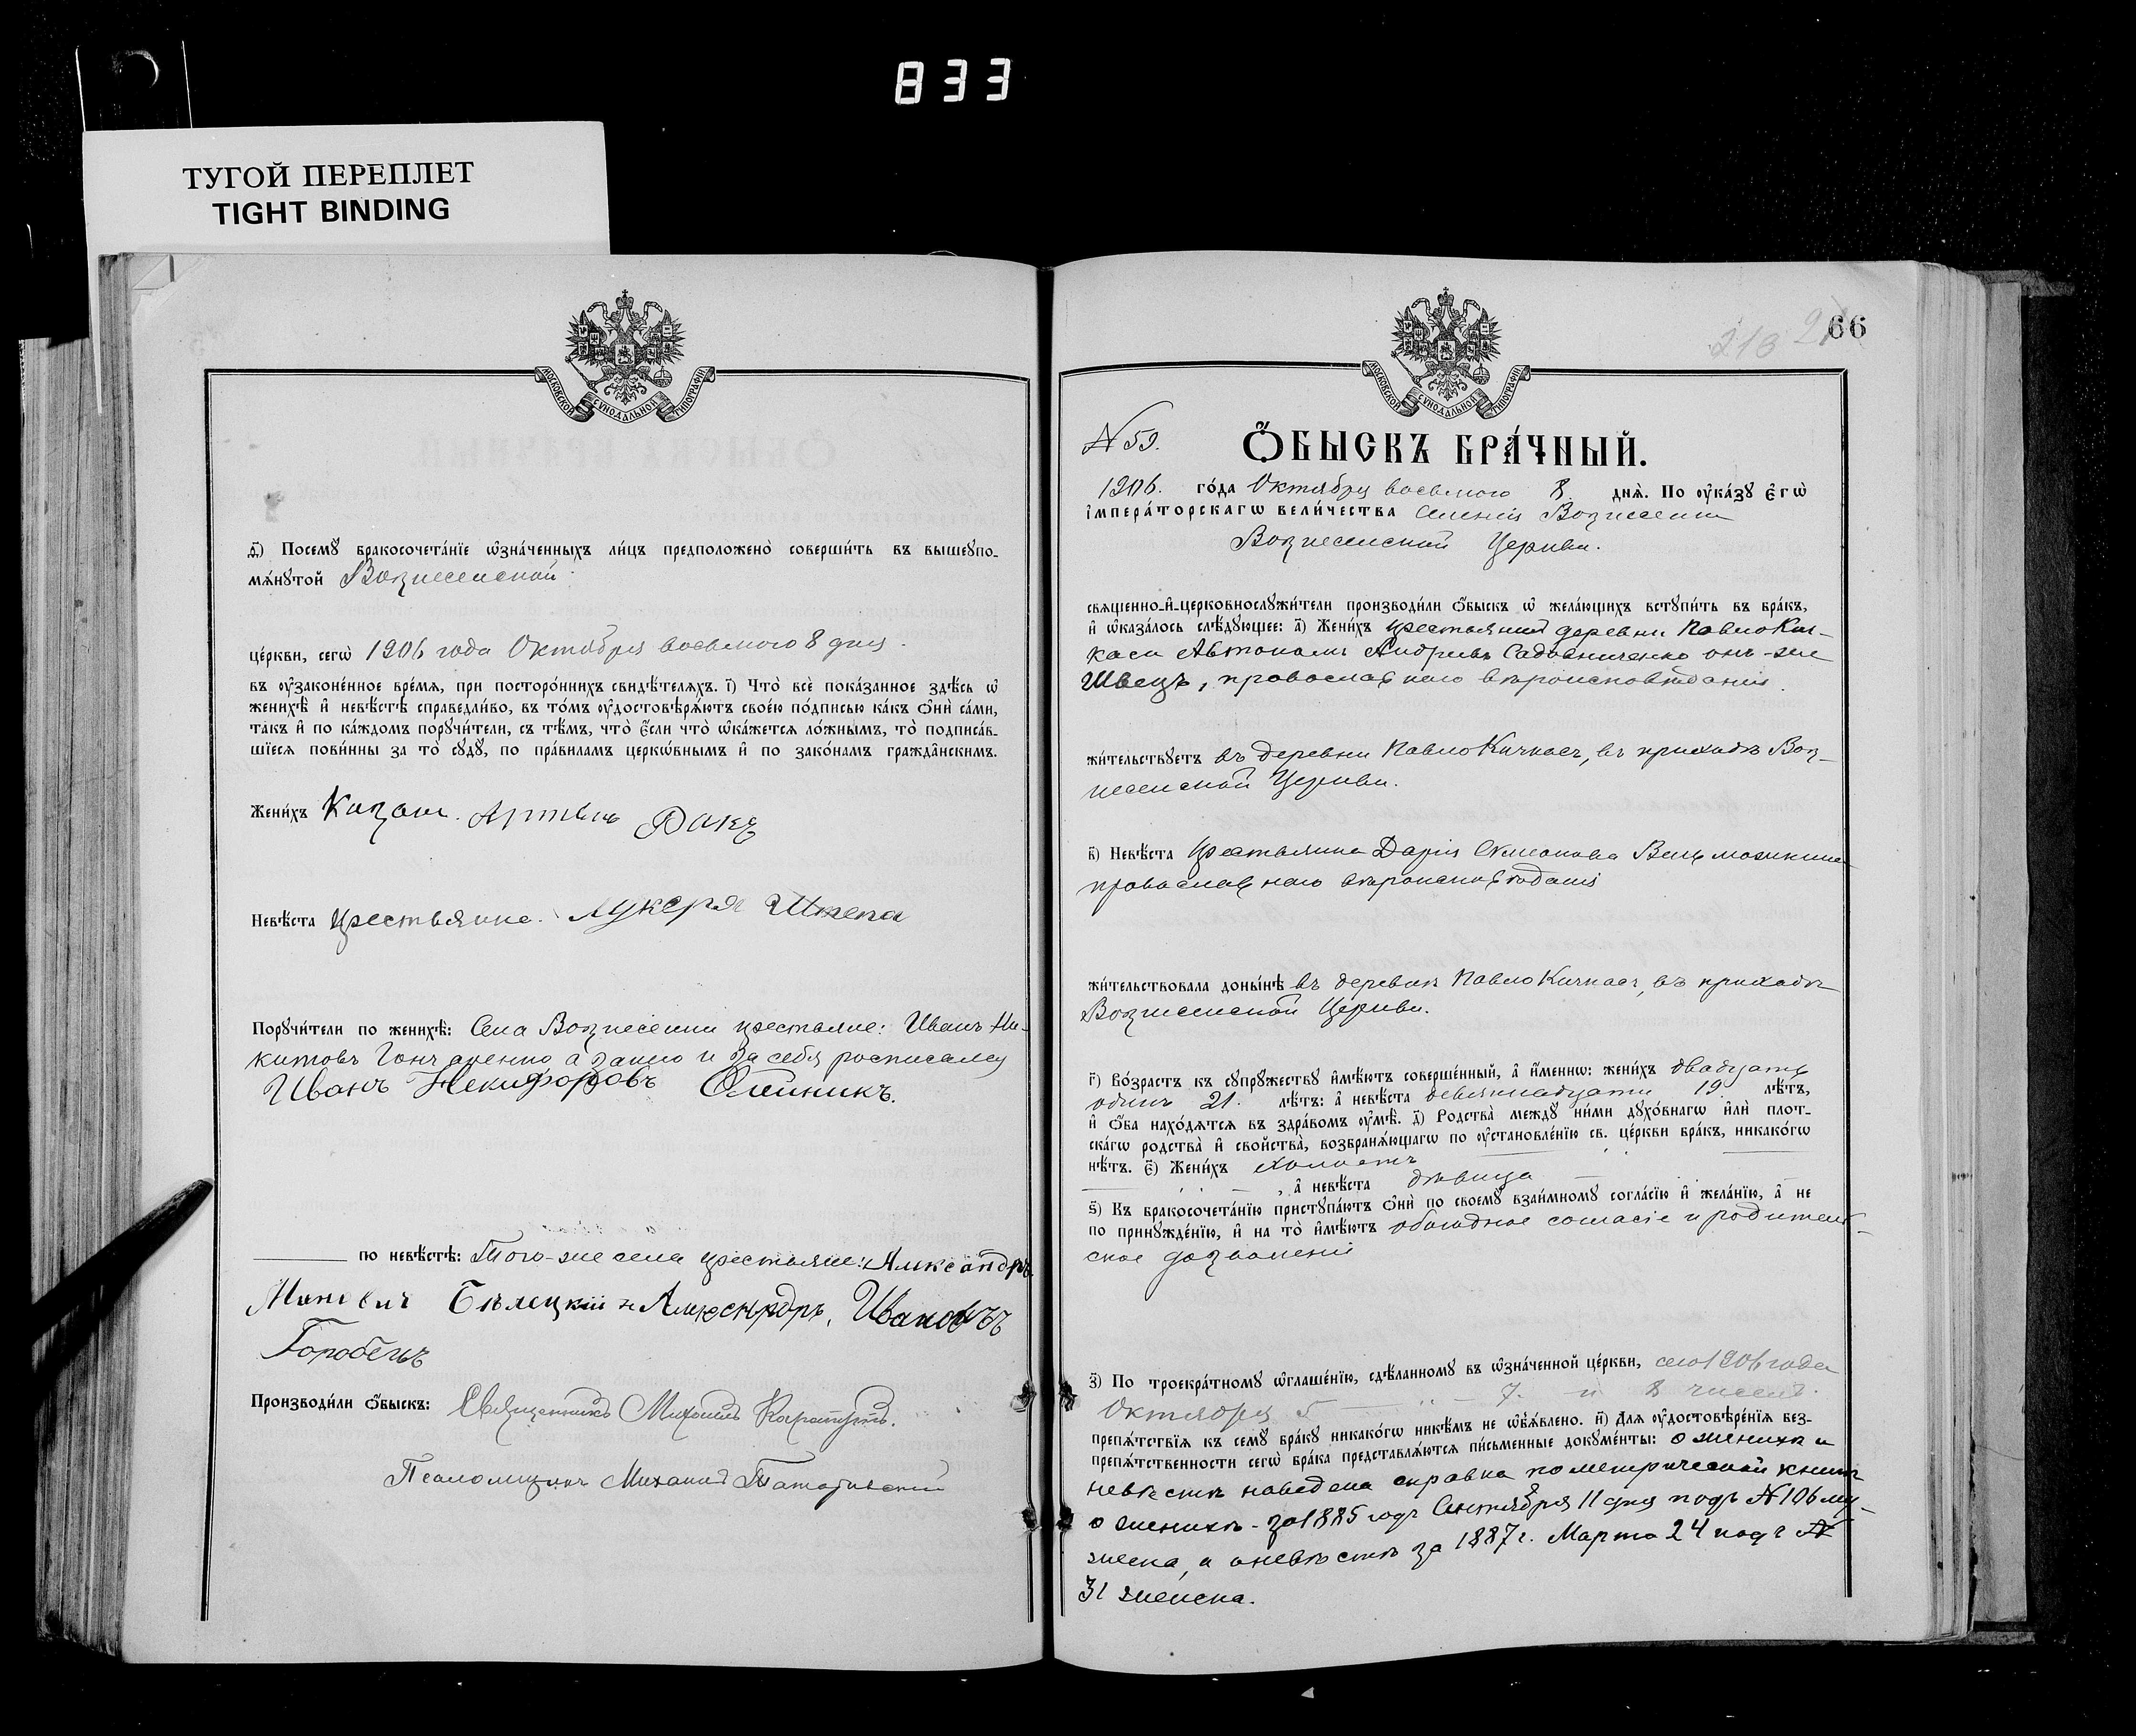 833
ТУГОЙ ПЕРЕПЛЕТ
TIGHT BINDING
МОСКОВСКОЙ СУНОДАЛЬНОЙ ТИПОГРАФІИ
ѳ҃) Посемꙋ̀ бракосочета́нїе ѡ҆зна́ченныхъ ли́цъ предположено̀ соверши́ть въ вышеꙋпо-
мѧ́нꙋтой Вознесенской
це́ркви, сегѡ̀ 1906 года Октября восьмого 8 дня.
въ ᲂу҆законе́нное вре́мѧ, при посторо́ннихъ свидѣ́телѧхъ. і҃) Что̀ всѐ пока́занное здѣ́сь ѡ҆
женихѣ̀ и҆ невѣ́стѣ справедли́во, въ то́мъ ᲂу҆достовѣрѧ́ютъ свое́ю по́дписью ка́къ ѻ҆нѝ са́ми,
та́къ и҆ по ка́ждомъ порꙋчи́тели, съ тѣ́мъ, что̀ є҆́сли что̀ ѡ҆ка́жетсѧ ло́жнымъ, то̀ подписа́в-
шїесѧ пови́нны за то̀ сꙋдꙋ̀, по пра́виламъ церкѡ́внымъ и҆ по зако́намъ гражда̑нскимъ.
Жени́хъ Казакъ. Артемъ Дакъ
Невѣ́ста Крестьянка. Лукеря Штепа
Порꙋчи́тели по женихѣ̀: Села Вознесенки крестьяне: Иванъ Ни-
китовъ Гончаренко а за него и за себя росписался
Иванъ Некифоровъ Олейникъ.
по невѣ́стѣ: Того-же села крестьяне: Александръ
Бѣлецкій и Александръ, Ивановъ
Горобецъ
Производи́ли ѻ҆́быскъ: Священникъ Михаилъ
Псаломщикъ Михаилъ
66
МОСКОВСКОЙ СУНОДАЛЬНОЙ ТИПОГРАФІИ
N 59. Ѻ҆́БЫСКЪ БРА́ЧНЫЙ.
1906. го́да Октября восьмого 8 днѧ̀. По ᲂу҆ка́зꙋ Є҆гѡ̀
і҆мпера́торскагѡ вели́чества Селенія Вознесенки
Вознесенской Церкви.
свѧще́нно-и҆-церковнослꙋжи́тели производи́ли ѻ҆́быскъ ѡ҆ жела́ющихъ встꙋпи́ть въ бра́къ,
и҆ ѡ҆каза́лось слѣ́дꙋющее: а҃) Жени́хъ крестьянинъ деревни Павло Кич-
каса Автономъ Андреевъ Садовниченко онъ-же
Швецъ, православнаго вѣроисповѣданія.
жи́тельствꙋетъ въ деревни Павло Кичкасъ, въ приходѣ Воз-
несенской Церкви.
в҃) Невѣ́ста Крестьянка Дарія Симонова Вельможкина
православнаго вѣроисповѣданія
жи́тельствовала доны́нѣ въ деревни Павло Кичкасъ, въ приходѣ
Вознесенской Церкви.
г҃) Во́зрастъ къ сꙋпрꙋ́жествꙋ и҆мѣ́ютъ соверше́нный, а҆ и҆́меннѡ: жени́хъ двадцать
одинъ 21. лѣ́тъ: а҆ невѣ́ста девятнадцати 19. лѣ́тъ,
и҆ ѻ҆́ба нахо́дѧтсѧ въ здра́вомъ ᲂу҆мѣ̀. д҃) Родства̀ междꙋ̀ ни́ми дꙋхо́внагѡ и҆лѝ плот-
ска́гѡ родства̀ и҆ сво́йства̀, возбранѧ́ющагѡ по ᲂу҆становле́нїю св. це́ркви бра́къ, никако́гѡ
нѣ́тъ. є҃) Жени́хъ холостъ
, а҆ невѣ́ста дѣвица
ѕ҃) Къ бракосочета́нїю пристꙋпа́ютъ ѻ҆нѝ по своемꙋ̀ взаи́мномꙋ согла́сїю и҆ жела́нїю, а҆ не
по принꙋжде́нїю, и҆ на то̀ и҆мѣ́ютъ обоюдное согласіе и родитель-
ское дозволеніе
з҃) По троекра́тномꙋ ѡ҆глаше́нїю, сдѣ́ланномꙋ въ ѡ҆зна́ченной це́ркви, сего 1906 года
Октября 7. и 8 чиселъ.
препѧ́тствїѧ къ семꙋ̀ бра́кꙋ никако́гѡ никѣ́мъ не ѡ҆б̾ѧ́влено. и҃) Длѧ ᲂу҆достовѣре́нїѧ без-
препѧ́тственности сегѡ̀ бра́ка представлѧ́ютсѧ пи́сьменные докꙋме́нты: о женихѣ и
невѣстѣ наведена справка по метрической книгѣ
о женихѣ - за 1885 годъ Сентября 11 дня подъ N 106 му-
жеска, а о невѣстѣ за 1887 г. Марта 24 подъ N
31 женска.